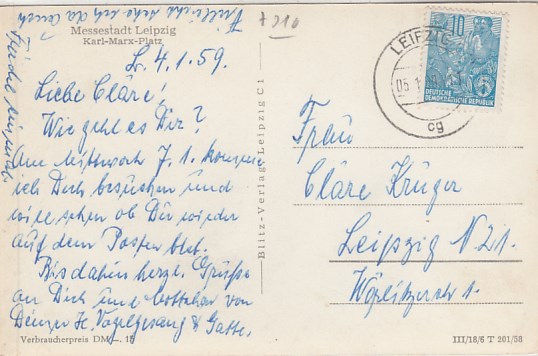 Vielleicht sehe ich da auch
7 210
Messestadt Leipzig
Karl-Marx-Platz
L. 4.1.59.
Liebe Cläre!
Wie geht es Dir?
Am Mittwoch 7.1. komme
ich Dich besuchen und
will sehen ob Du wieder
auf dem Posten bist.
Bis dahin herzl. Grüße
an Dich und Gatten von
Deiner H. Vogelgesang & Gatte.
Verbraucherpreis DM –. 15
Blitz-Verlag Leipzig C 1
LEIPZIG
05.1
cg
10
5
DEUTSCHE
DEMOKRATISCHE REPUBLIK
Frau
Cläre Krüger
Leipzig N 21.
Wörlitzerstr 1.
III/18/6 T 201/58